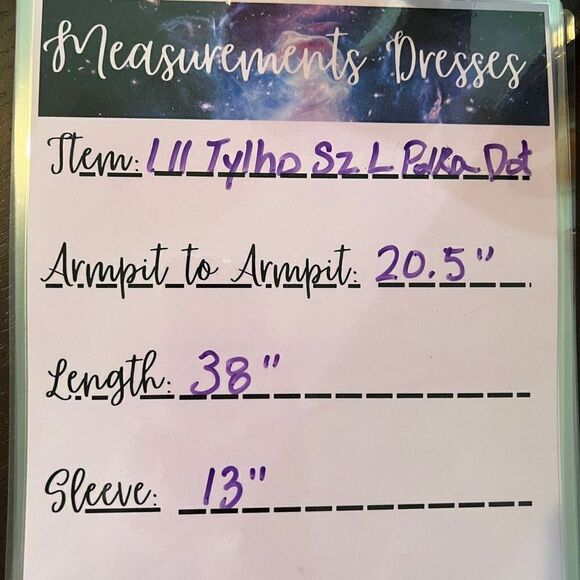 Measurements Dresses
Item: 111 Tylho Sz L Polka Dot
Armpit to Armpit: 20.5"
Length: 38"
Sleeve: 13"